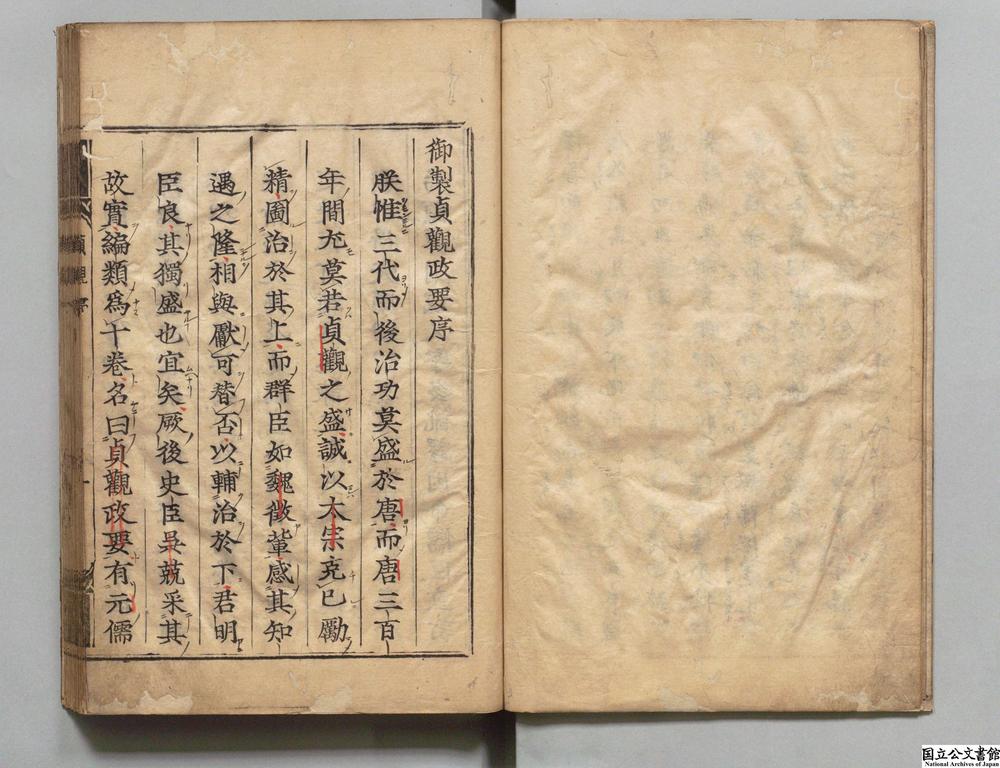 御製貞觀政要序
朕惟三代而後治功莫盛於唐而唐三百
年間尤莫若貞觀之盛誠以太宗克已勵
精圖治於其上而群臣如魏徵軰感其知
遇之隆相與獻可替否以輔治於下君明
臣良其獨盛也宜矣厥後史臣吳兢采其
故實編類爲十卷名曰貞觀政要有元儒
国立公文書館
National Archives of Japan